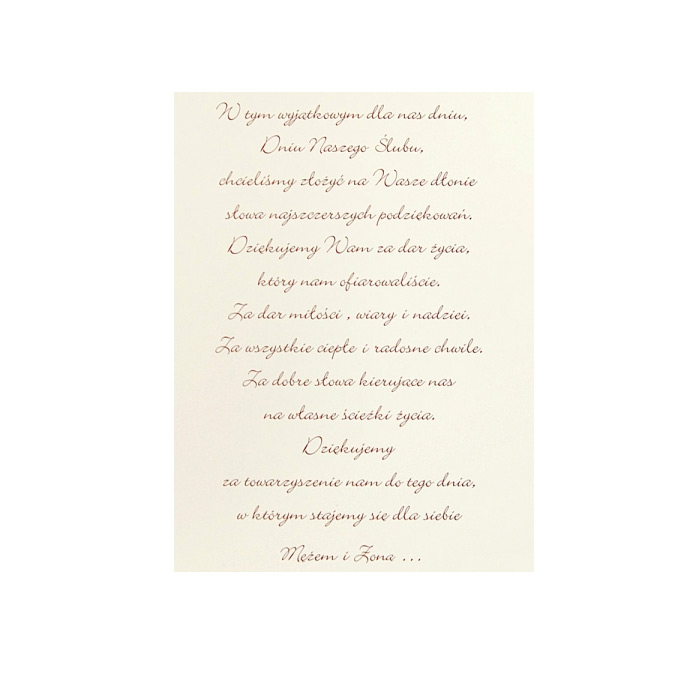 W tym wyjątkowym dla nas dniu,
Dniu Naszego Ślubu,
chcieliśmy złożyć na Wasze dłonie
słowa najszczerszych podziękowań.
Dziękujemy Wam za dar życia,
który nam ofiarowaliście.
Za dar miłości , wiary i nadziei.
Za wszystkie ciepłe i radosne chwile.
Za dobre słowa kierujące nas
na własne ścieżki życia.
Dziękujemy
za towarzyszenie nam do tego dnia,
w którym stajemy się dla siebie
Mężem i Żoną ...